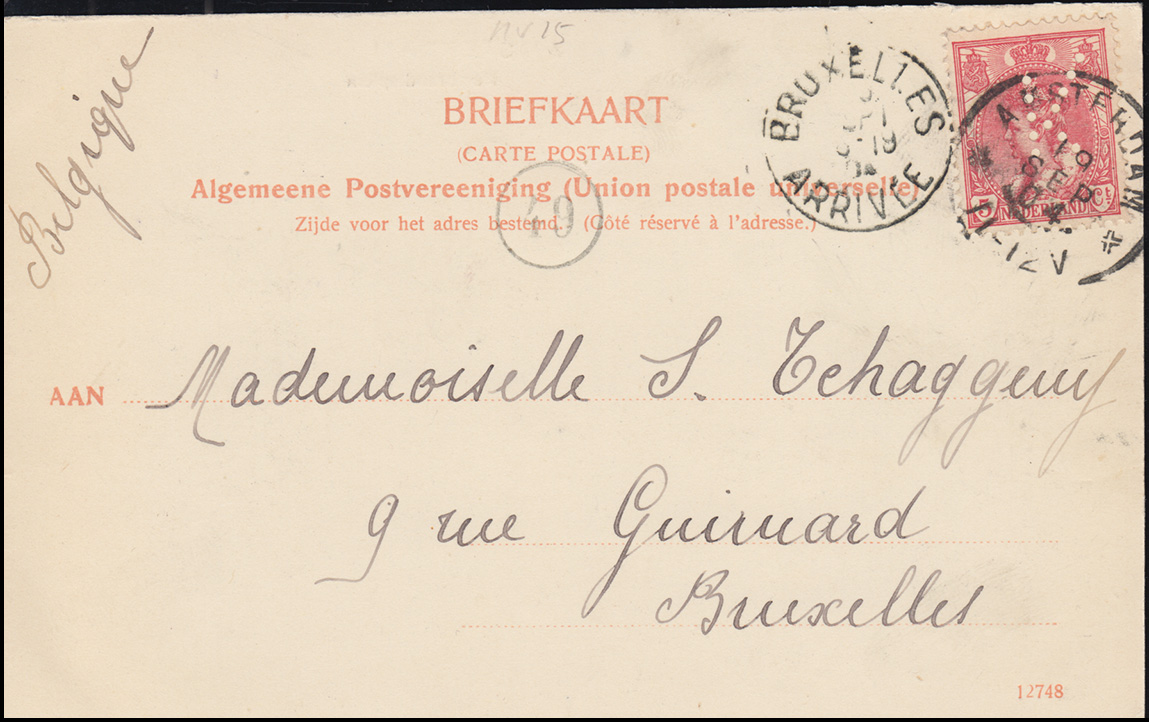 nv 15
BRIEFKAART
(CARTE POSTALE)
Algemeene Postvereeniging (Union postale universelle)
Zijde voor het adres bestemd. (Côté réservé à l'adresse.)
19
Belgique
BRUXELLES
ARRIVEE
AMSTERDAM
19
SEP
04
11-12V
5 NEDERLAND Ct
AAN Mademoiselle S. Tchaggeny
9 rue Guimard
Bruxelles
12748